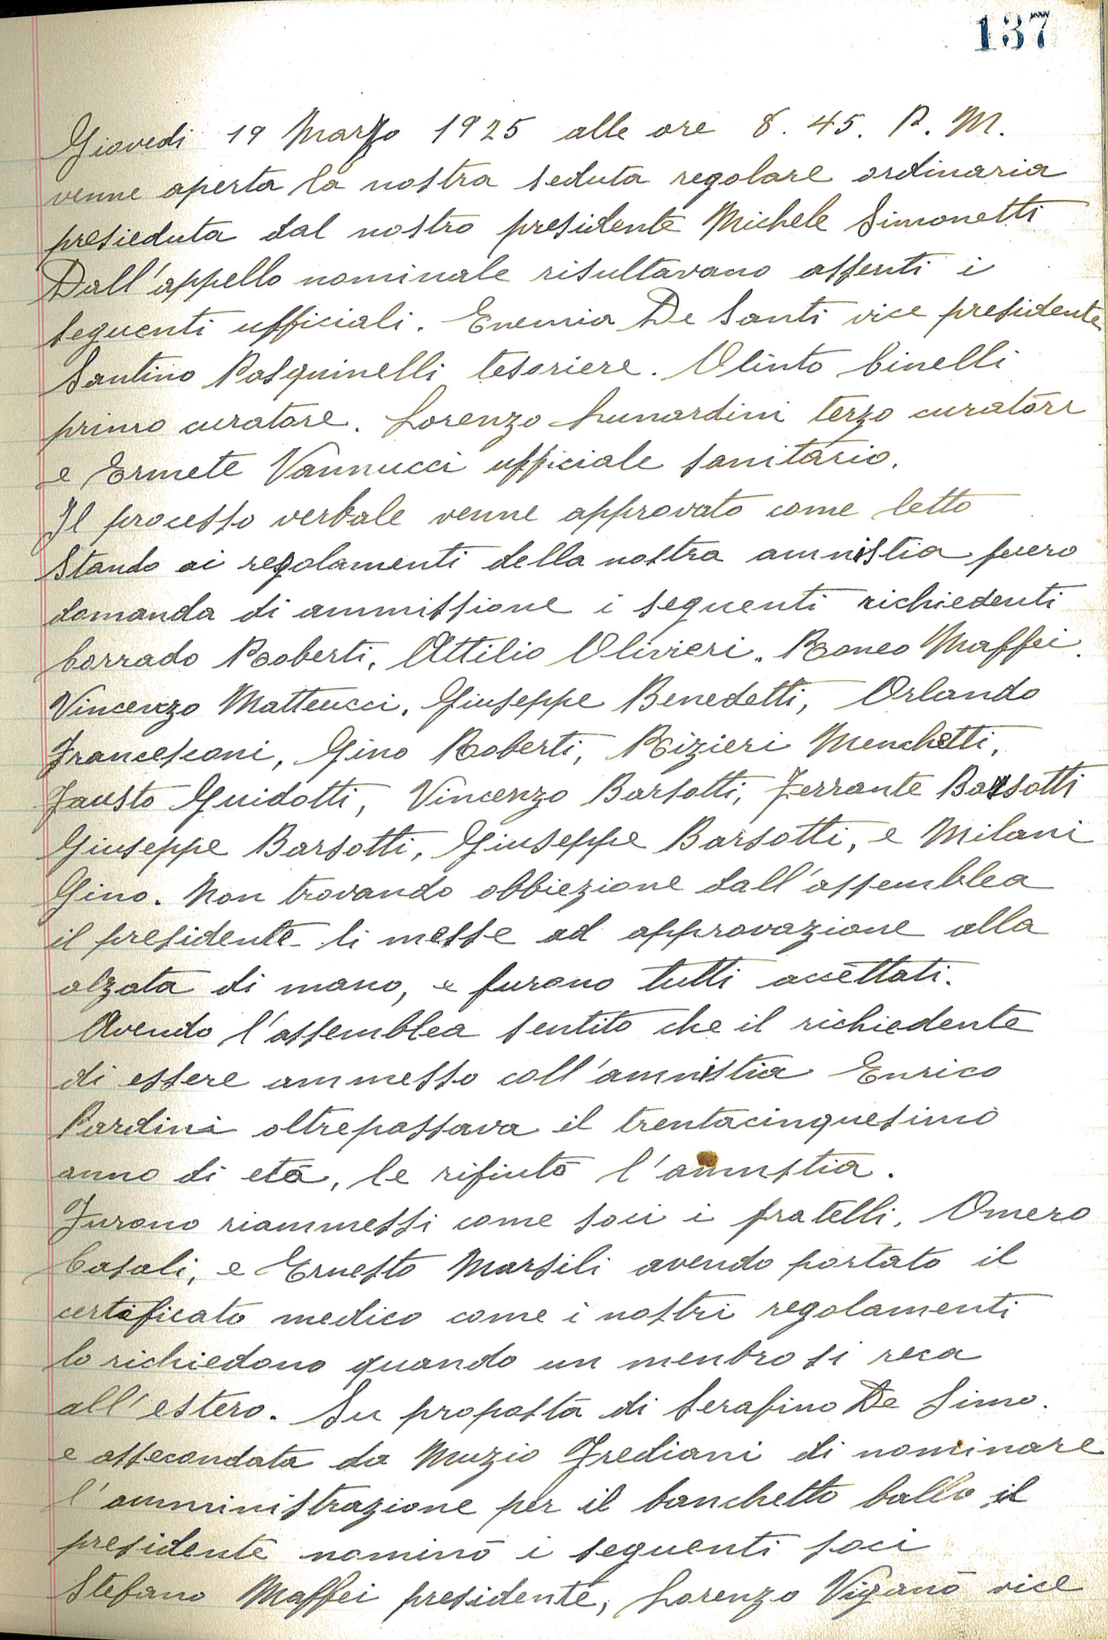 137
Giovedi 19 Marzo 1925 alle ore 8. 45. P. M.
venne aperta la nostra seduta regolare ordinaria
presieduta dal nostro presidente Michele Simonetti
Dall'appello nominale risultavano assenti i
seguenti ufficiali. Enemia De Santi vice presidente
Santino Pasquinelli tesoriere. Olinto Cinelli
primo curatore. Lorenzo Lunardini terzo curatore
e Ermete Vannucci ufficiale sanitario.
Il processo verbale venne approvato come letto
Stando ai regolamenti della nostra amnistia fuero
domanda di ammissione i seguenti richiedenti
Corrado Roberti, Attilio Olivieri. Romeo Maffei.
Vincenzo Matteucci, Giuseppe Benedetti, Orlando
Francesconi, Gino Roberti, Rizieri Menchetti,
Fausto Guidotti, Vincenzo Barsotti, Ferrante Barsotti
Giuseppe Barsotti, Giuseppe Barsotti, e Milani
Gino. Non trovando obbiezione dall'assemblea
il presidente li messe ad approvazione alla
alzata di mano, e furono tutti accettati.
Avendo l'assemblea sentito che il richiedente
di essere ammesso coll'amnistia Enrico
Pardini oltrepassava il trentacinquesimo
anno di età, le rifiutò l'amnistia.
Furono riammessi come soci i fratelli, Omero
Casali, e Ernesto Marsili avendo portato il
certificato medico come i nostri regolamenti
lo richiedono quando un menbro si reca
all'estero. Su proposta di Serafino De Simo.
e assecondata da Muzio Frediani di nominare
l'amministrazione per il banchetto ballo il
presidente nominò i seguenti soci
Stefano Maffei presidente, Lorenzo Viganò vice